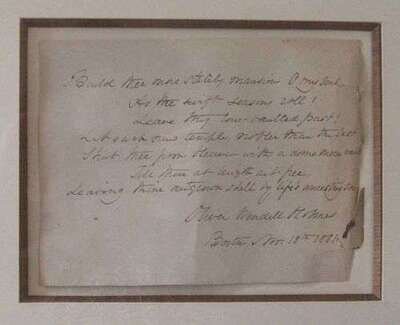 Build thee more stately mansions O my soul
As the swift seasons roll!
Leave thy low-vaulted past!
Let each new temple, nobler than the last
Shut thee from Heaven with a dome more vast
Till thou at length art free
Leaving thine outgrown shell by life's unresting sea
Oliver Wendell Holmes
Boston, Nov. 18th